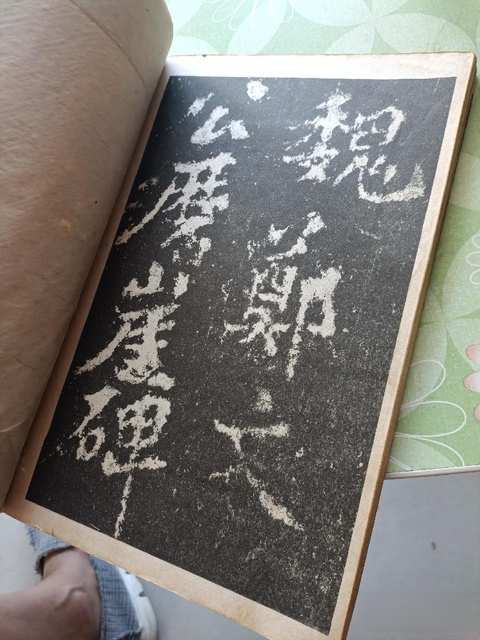 魏鄭文
公磨崖碑